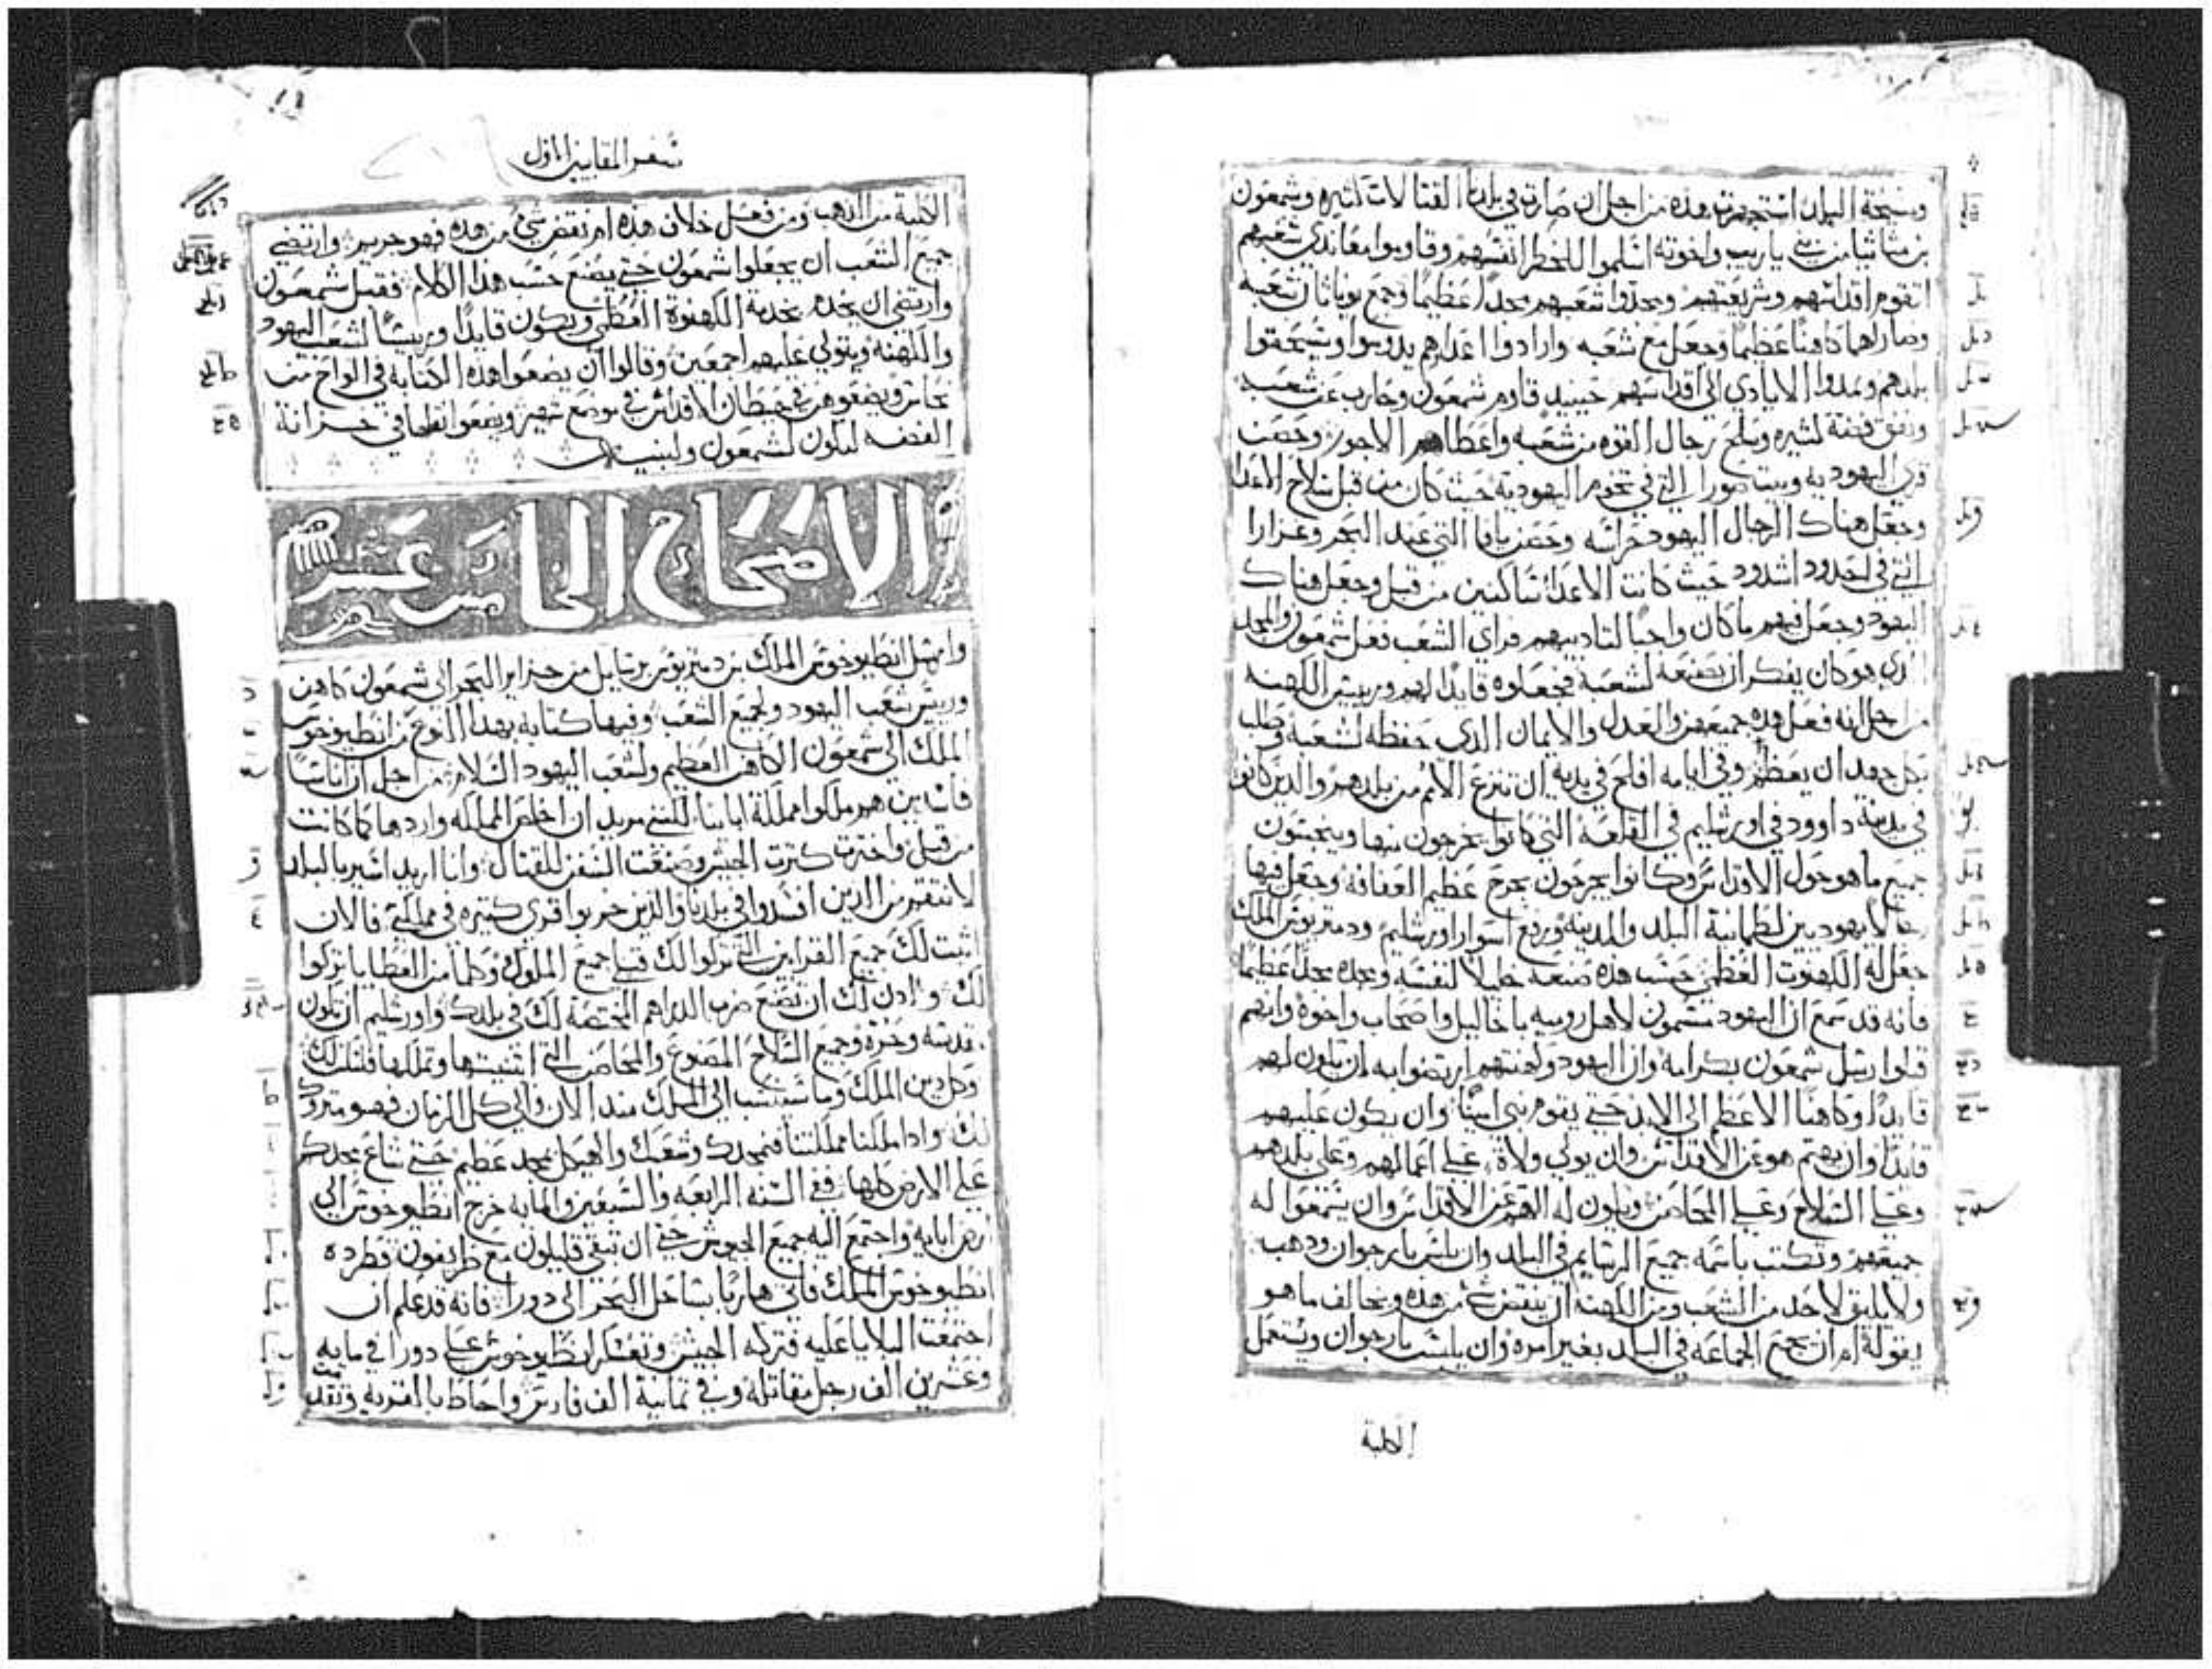 ومشيخة البلد استجهرت هذه من اجل ان صارت في بلدنا القتالات كثيره وشمعون
بن متاثيا من بني ياريب واخوته اسلموا للخطر انفسهم وقاوموا معاندي شعبهم
لتقوم اقداسهم وشريعتهم ومجدوا شعبهم مجدا عظيما وجمع يوناثان شعبه
وصار لهم كاهنا عظيما وجعل مع شعبه وارادوا اعداهم يدوسوا ويسحقوا
بلدهم ويمدوا الايادي الى اقداسهم حينيد قاوم شمعون وحارب عن شعبه
ونفق فضة كثيره وسلح رجال القوه من شعبه واعطاهم الاجور وحصن
قرى اليهوديه وبيت صورا التي في تخوم اليهودية حيث كان من قبل سلاح الاعدا
وجعل هناك الرجال اليهود حراسه وحصن يافا التي عند البحر وعزارا
التي في احدود اشدود حيث كانت الاعدا ساكنين من قبل وجعل هناك
اليهود وجعل فيهم ما كان واجبا لتاديبهم فراي الشعب فعل شمعون والمجد
الذي هو كان يفكر ان يصنعه لشعبه فجعلوه قايدا لهم وريس الكهنه
من اجل انه فعل هذه جميعهن والعدل والايمان الذي حفظه لشعبه وطلب
بكل جهد ان يعظم وفي ايامه افلح في يديه ان تنزع الامم من بلدهم والدين كانوا
في مدينة داوود في اورشليم في القلعة التي كانوا يخرجون منها وينجسون
جميع ما هو حول الاقداس وكانوا يجرحون بجرح عظيم العفافه وجعل فيها
رجالا يهوديين لطمانية البلد والمدينه ورفع اسوار اورشليم ودمتريوس الملك
جعل له الكهنوت العظمى حسب هذه صنعه خليلا لنفسه ومجده مجدا عظيما
فانه قد سمع ان اليهود متسمون لاهل روميه باخاليل واصحاب واخوة وانهم
قبلوا رسل شمعون بكرامه وان اليهود وكهنتهم ارتضوا به ان يكون لهم
قايدا وكاهنا الاعظم الى الابد حتى يقوم نبي امينا وان يكون عليهم
قايدا وان يهتم هو عن الاقداس وان يولي ولاة على اعمالهم وعلى بلدهم
وعلى السلاح وعلى المحاصن ويكون له الهم عن الاقداس وان يسمعوا له
جميعهم وتكتب باسمه جميع الرسايم في البلد وان يلتبس بارجوان ودهب
ولا يليق لاحد من الشعب ومن الكهنه ان ينقض شي من هده ويخالف ما هو
يقوله ام ان يجمع الجماعه في البلد بغير امره وان يلبس بارجوان ويستعمل
الكلبة
سفر المقابيين الاول
الكلبة من الدهب ومن فعل خلاف هذه ام نقض شي من هده فهو جريم وارتضي
جميع الشعب ان يجعلوا شمعون حتى يصنع حسب هذا الكلام فقبل شمعون
وارتضي ان يخدم بخدمة الكهنوة العظمى ويكون قايدا وريسا لشعب اليهود
والكهنه ويتولى عليهم اجمعين وقالوا ان يضعوا هذه الكتابة في الواح من
نحاس ويضعوهن في حيطان الاقداس في موضع شهير ويضعوا نظها في خزانة
الفضه ليكون لشمعون ولبنيه
الاصحاح الخامس عشر
وارسل انطيوخوس الملك بن دمتريوس رسايل من جزاير البحر الى شمعون كاهن
وريس شعب اليهود ولجميع الشعب وفيها كتابه بهدا النوع من انطيوخوس
الملك الى شمعون الكاهن العظيم ولشعب اليهود السلام من اجل ان اناسا
فاسدين هم ملكوا مملكة ابايينا لكنني مريد ان اخلص المملكه واردها كما كانت
من قبل واخترت كترت الجيش وصنعت السفن للقتال وانا اريد اسير بالبلد
لانتقم من الدين افسدوا في بلدنا والذين خربوا قرى كتيره في مملكتي فالان
اثبت لك جميع القرابين التي تركوا لك قبلي جميع الملوك وكلما من العطايا تركوا
لك وادن لك ان تصنع ضرب الدراهم المختصة لك في بلدك واورشليم ان تكون
قديسه وحرة وجميع السلاح المصنوع والمحاصن التي ابتنيتها وتملكها فلتكن لك
وكل دين الملك وما سينتسب الى الملك مند الان والى كل الزمان فهو متروك
لك وادا ملكنا مملكتنا فنمجدك وشعبك والهيكل بمجد عظيم حتى شاع مجدكم
على الارض كلها ففي السنه الرابعه والسبعين والمايه خرج انطيوخوس الى
ارض ابايه واجتمع اليه جميع الجيوش حتى ان تبقي قليلون مع طريفون فطرده
انطيوخوس الملك فاتى هاربا بساحل البحر الى دورا فانه قد علم ان
اجتمعت البلايا عليه فتركه الجيش وتعسكر انطيوخوس على دورا في مايه
وعشرين الف رجل مقاتله وفي تمانية الف فارس واحاط بالقريه وتقدمت